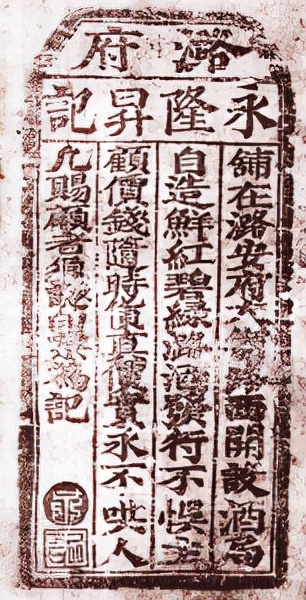 潞府
永隆昇記
舖在潞安府路西開設酒局
自造鮮紅碧綠潞酒發行不悞主
顧價錢隨時真價實永不哄人
凡賜顧者認記